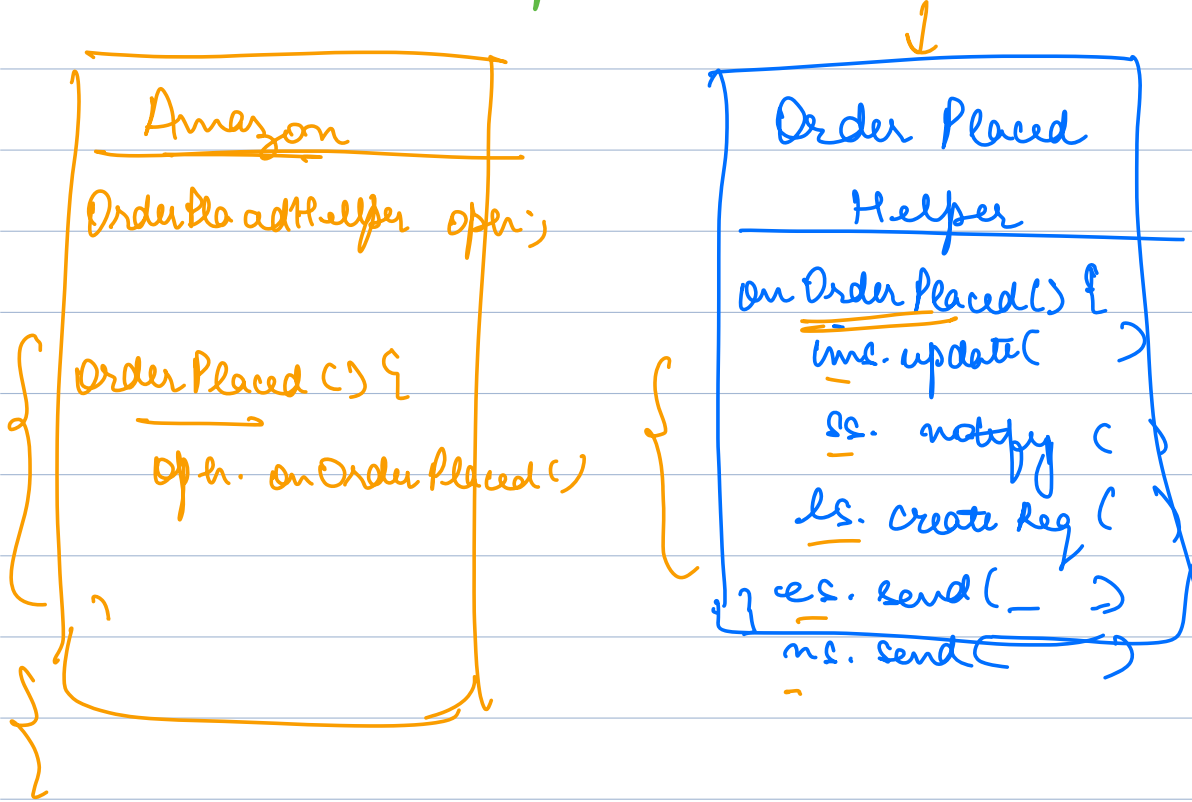 Amazon
OrderPlaadHelper oph;
orderPlaced () {
oph. onOrderPlaced()
}
Order Placed
Helper
onOrderPlaced() {
ims. update( )
ss. notify ( )
ls. create Req ( )
es. send ( _ )
}
ns. send ( )